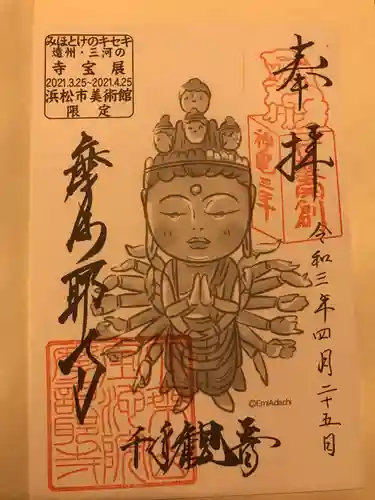 みほとけのキセキ
遠州・三河の
寺宝展
2021.3.25~2021.4.25
浜松市美術館
限定
奉拝
神亀三年
創
令和三年四月二十五日
摩訶耶寺
©EmiAdachi
千手観音